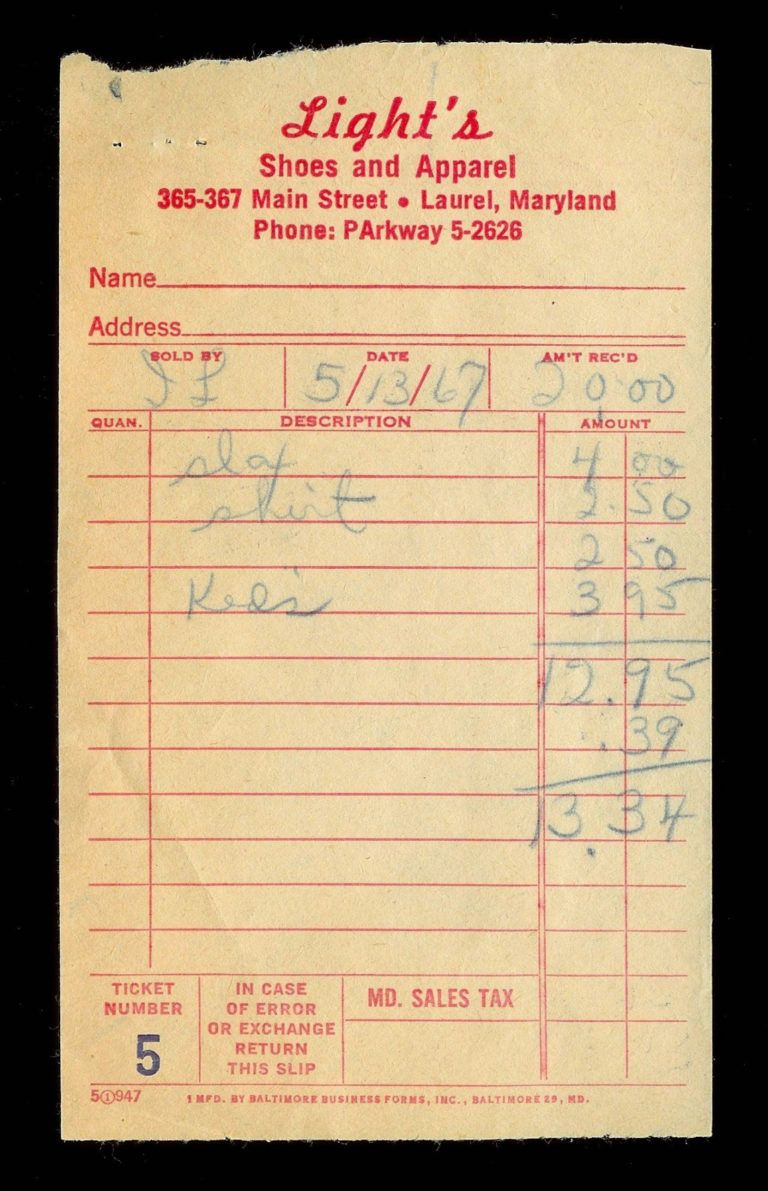 Light's
Shoes and Apparel
365-367 Main Street • Laurel, Maryland
Phone: PArkway 5-2626
Name
Address
SOLD BY DATE AM'T REC'D
5/13/67 20.00
QUAN. DESCRIPTION AMOUNT
slax 4 00
shirt 2.50
2 50
Keds 3 95
12.95
.39
13.34
TICKET NUMBER
5
IN CASE
OF ERROR
OR EXCHANGE
RETURN
THIS SLIP
MD. SALES TAX
5①947 1 MFD. BY BALTIMORE BUSINESS FORMS, INC., BALTIMORE 29, MD.